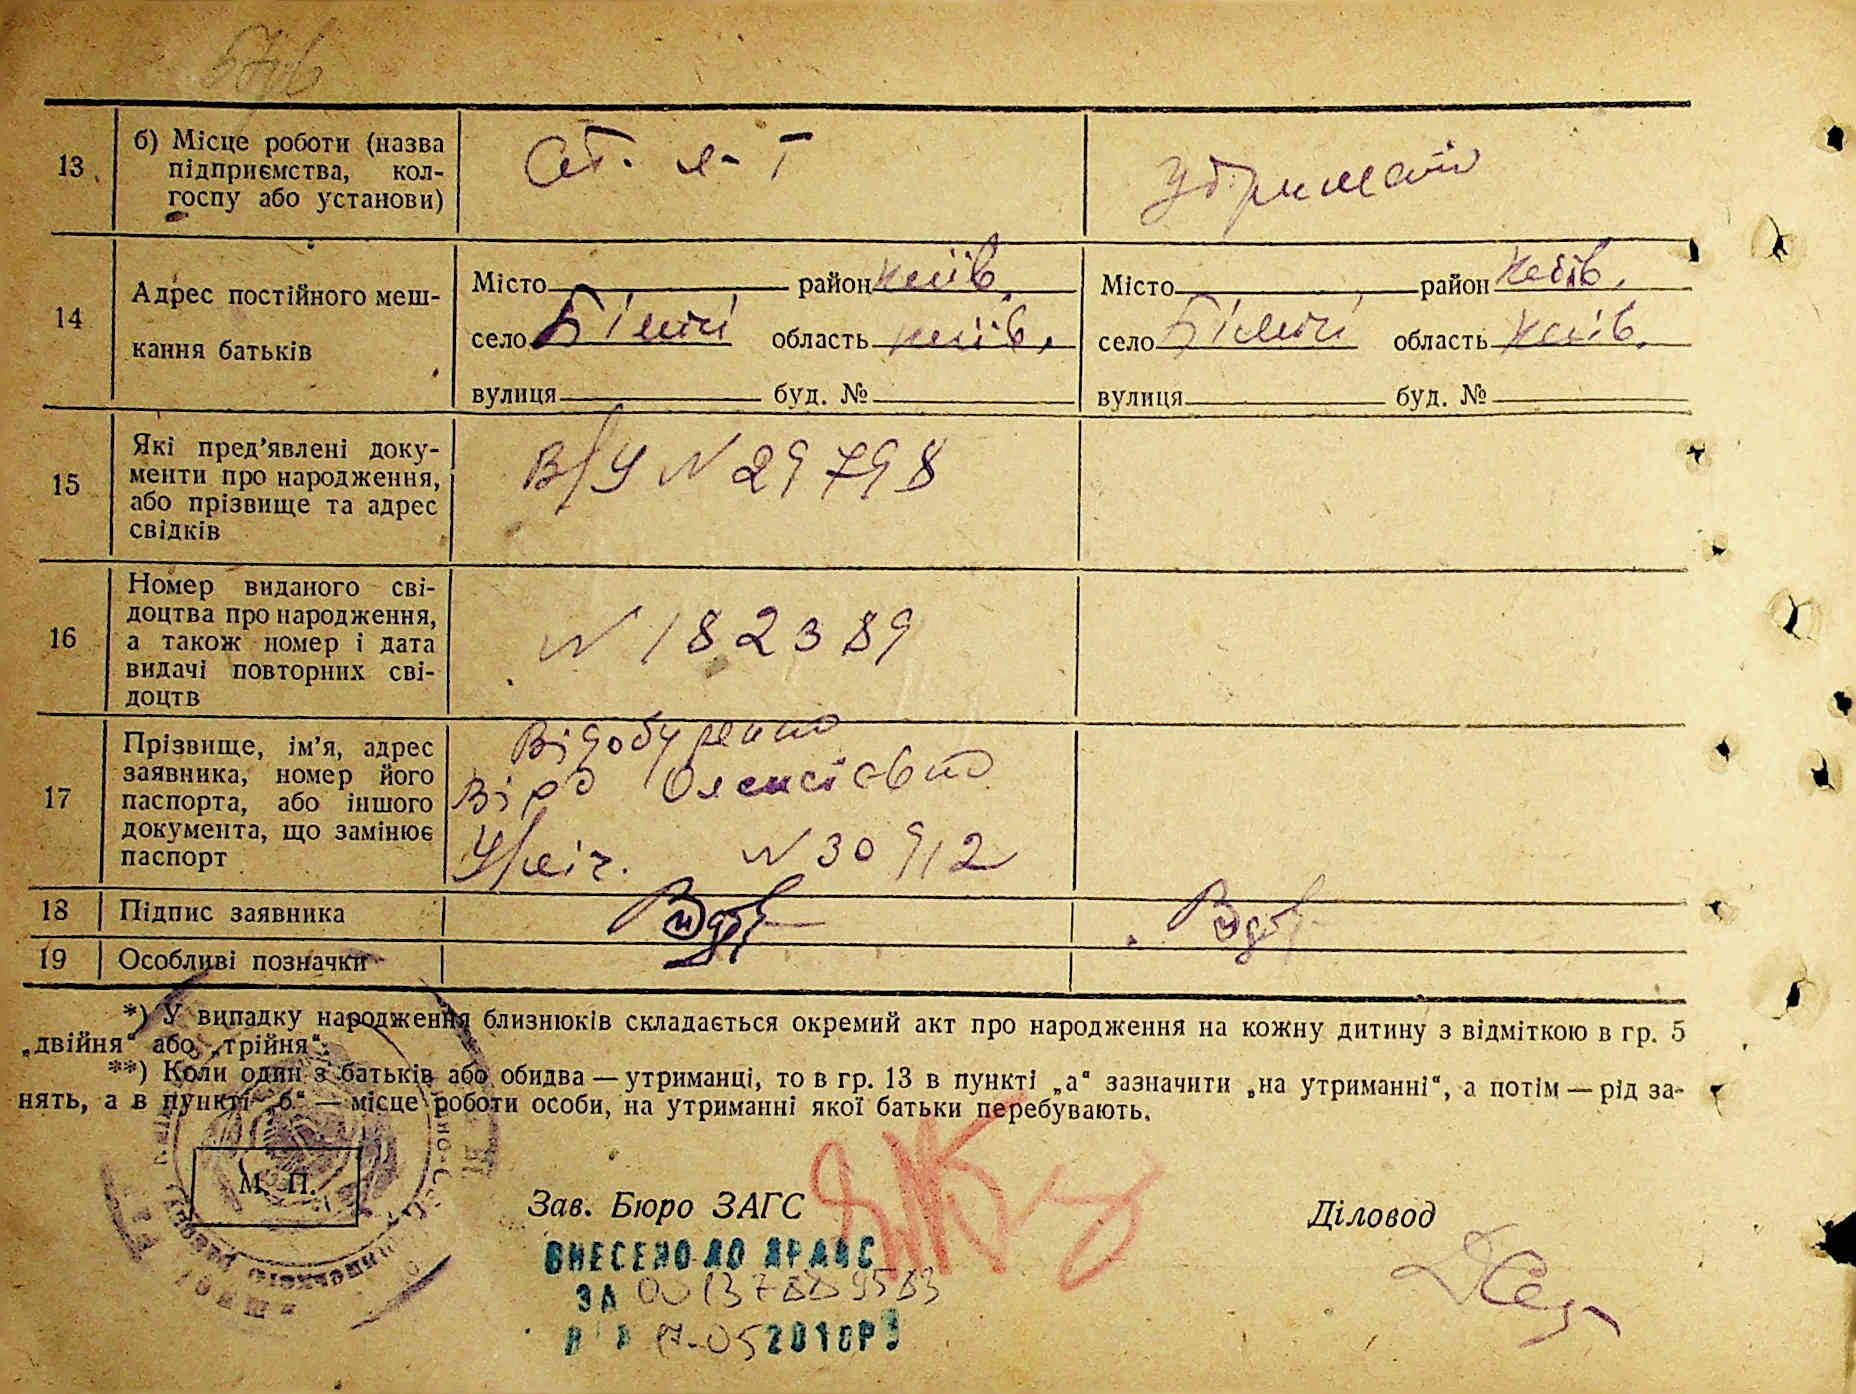 13
б) Місце роботи (назва
підприємства, кол-
госпу або установи)
ст.
14
Адрес постійного меш-
кання батьків
Місто район Київ.
село Біличі область Київ.
вулиця буд. №
Місто район Київ.
село Біличі область Київ.
вулиця буд. №
15
Які пред’явлені доку-
менти про народження,
або прізвище та адрес
свідків
В/У N 29798
16
Номер виданого сві-
доцтва про народження,
а також номер і дата
видачі повторних сві-
доцтв
N 182389
17
Прізвище, ім’я, адрес
заявника, номер його
паспорта, або іншого
документа, що замінює
паспорт
Віра Олексіївна
N 30912
18
Підпис заявника
19
Особливі позначки
*) У випадку народження близнюків складається окремий акт про народження на кожну дитину з відміткою в гр. 5
„двійня“ або „трійня“.
**) Коли один з батьків або обидва — утриманці, то в гр. 13 в пункті „а“ зазначити „на утриманні“, а потім — рід за-
нять, а в пункті „б“ — місце роботи особи, на утриманні якої батьки перебувають.
М. П.
Зав. Бюро ЗАГС
Діловод
ВНЕСЕНО ДО ДРАЦС
ЗА
2010Р